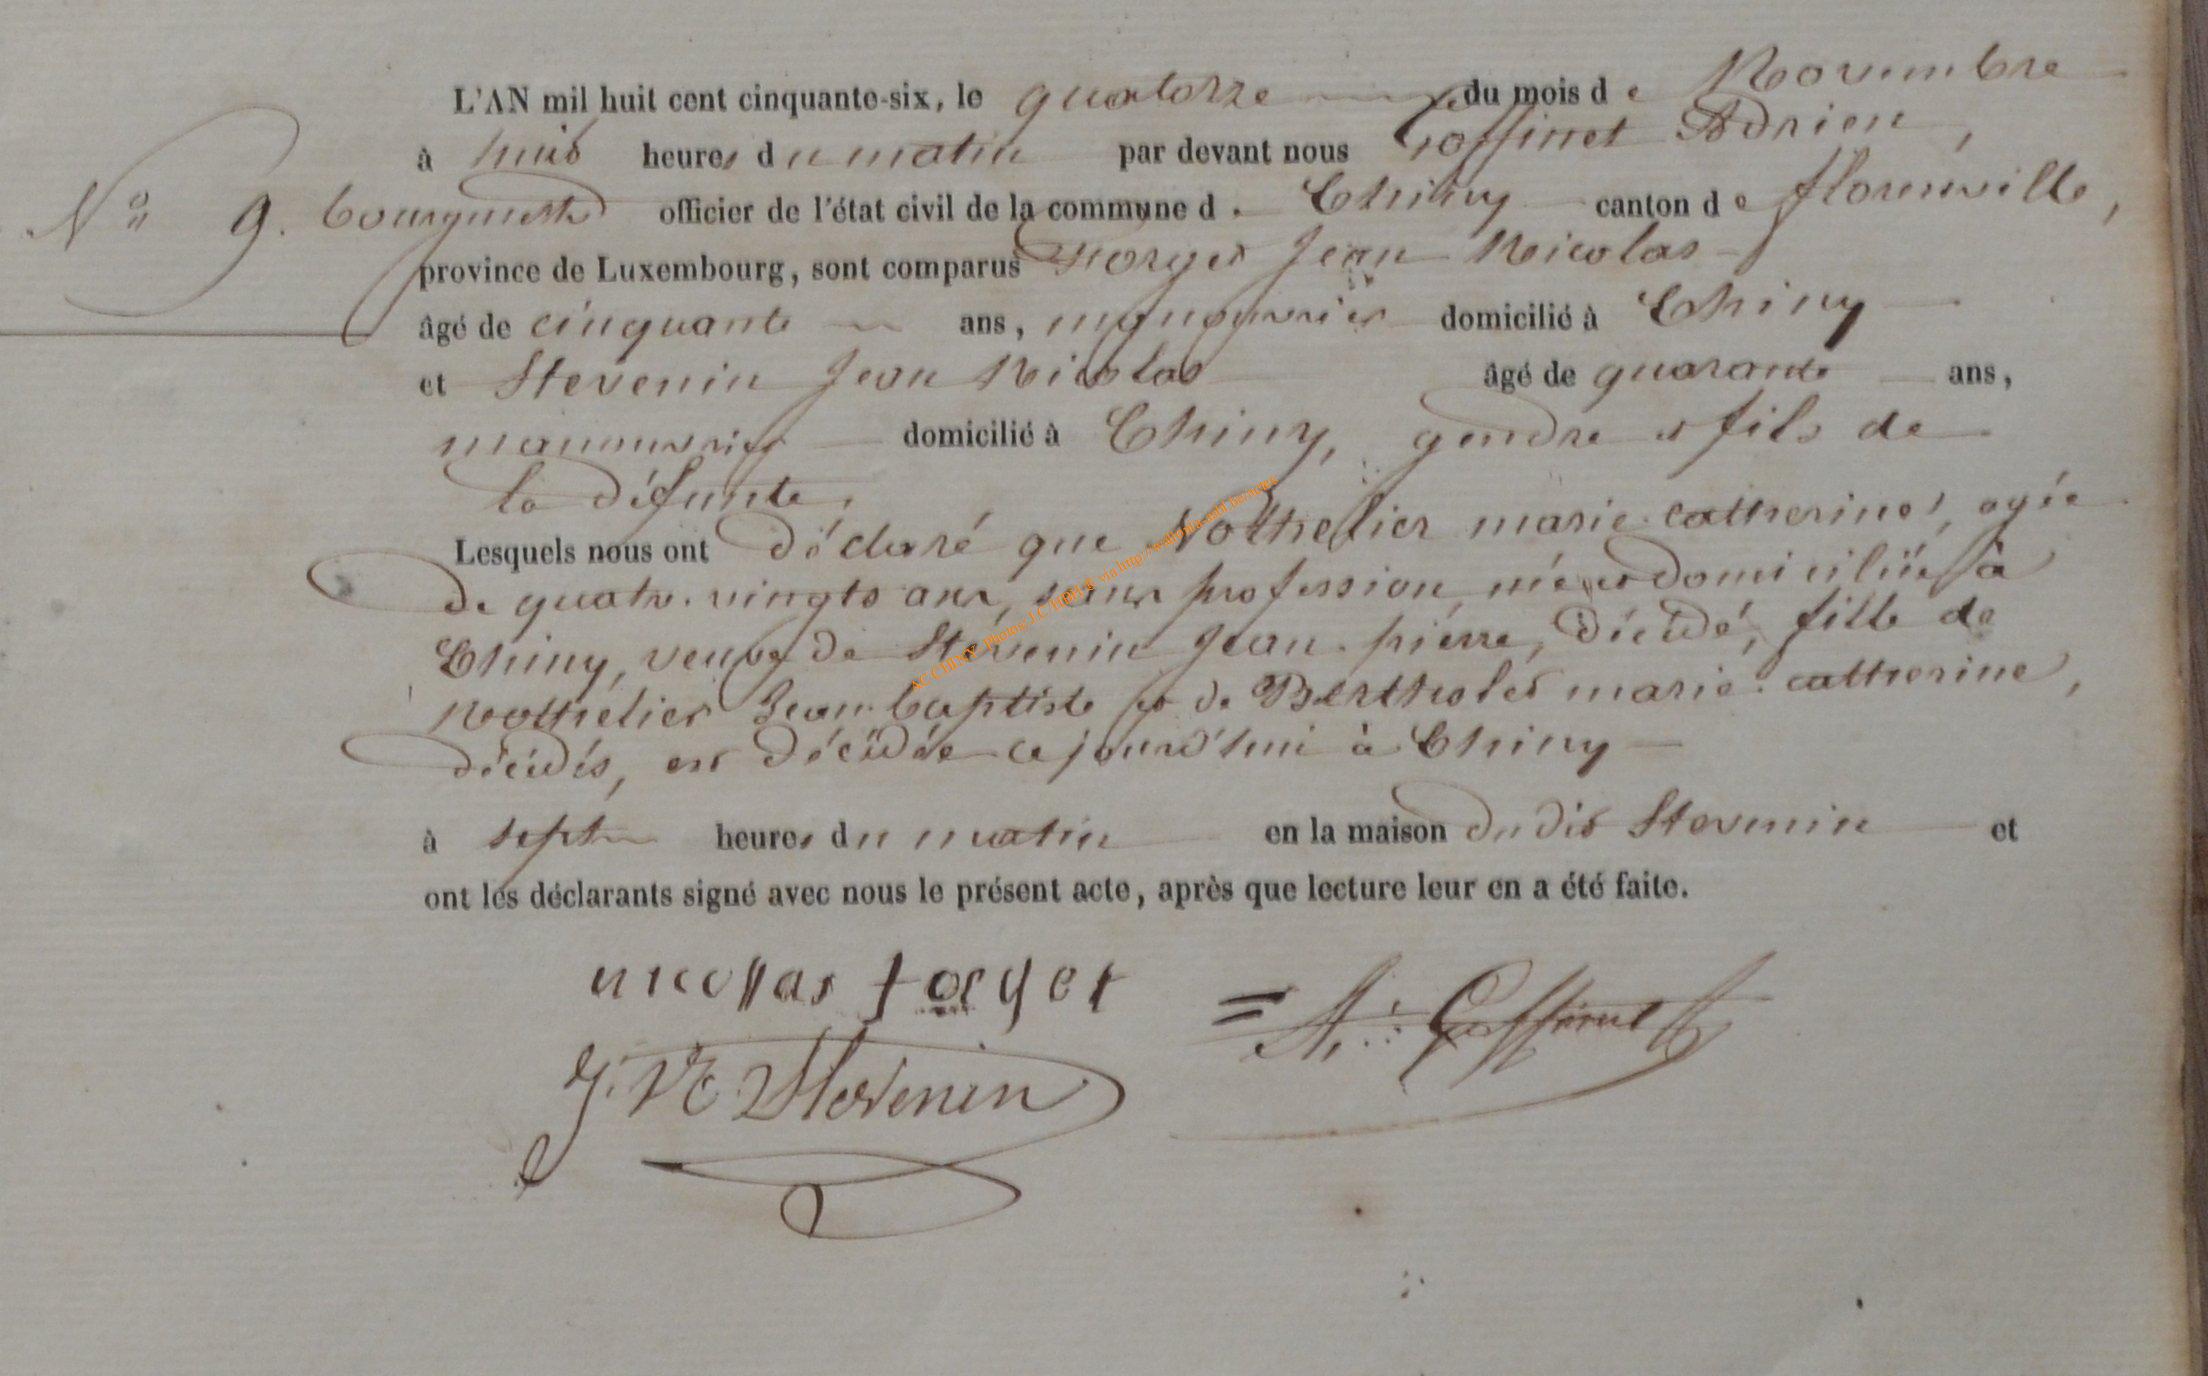 L'AN mil huit cent cinquante-six, le quatorze du mois de Novembre
à huit heures du matin par devant nous Goffinet Adrien,
N° 9. bourgmestre officier de l'état civil de la commune de Chiny canton de florenville,
province de Luxembourg, sont comparus Forget Jean Nicolas
âgé de cinquante ans, manouvrier domicilié à Chiny
et Stevenin Jean Nicolas âgé de quarante ans,
manouvrier domicilié à Chiny, gendre et fils de
la défunte,
Lesquels nous ont déclaré que Nothelier marie catherine, agée
de quatre-vingts ans, sans profession, née et domiciliée à
Chiny, veuve de Stévenin Jean-pierre, décédé, fille de
Nothelier Jean-baptiste et de Bertholet marie-catherine,
décédés, est décédée ce jourd'hui à Chiny
à sept heures du matin en la maison du dit Stevenin et
ont les déclarants signé avec nous le présent acte, après que lecture leur en a été faite.
nicollas forget
A. Goffinet
J. N. Stevenin